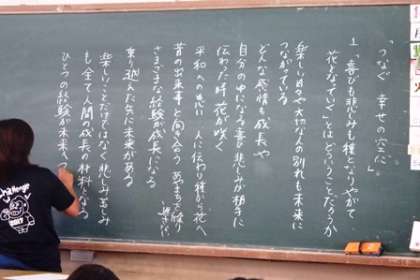 「つなぐ 幸せの穴に」
1. 喜びも悲しみも種となりやがて
花となっていくとはどういうことだろうか
楽しい日々や大切な人の別れも未来に
つながっている
どんな感情も成長や
自分の中にある喜び悲しみが相手に
伝わった時、花が咲く
平和への思い 人に伝わり種から花へ
昔の出来事と向き合う あやまちを繰り
さまざまな経験が成長になる
乗り越えた先に未来がある
楽しいことだけではなく悲しみ苦しみ
も全て人間の成長の材料となる
ひとつの経験が未来へつ
Challenge